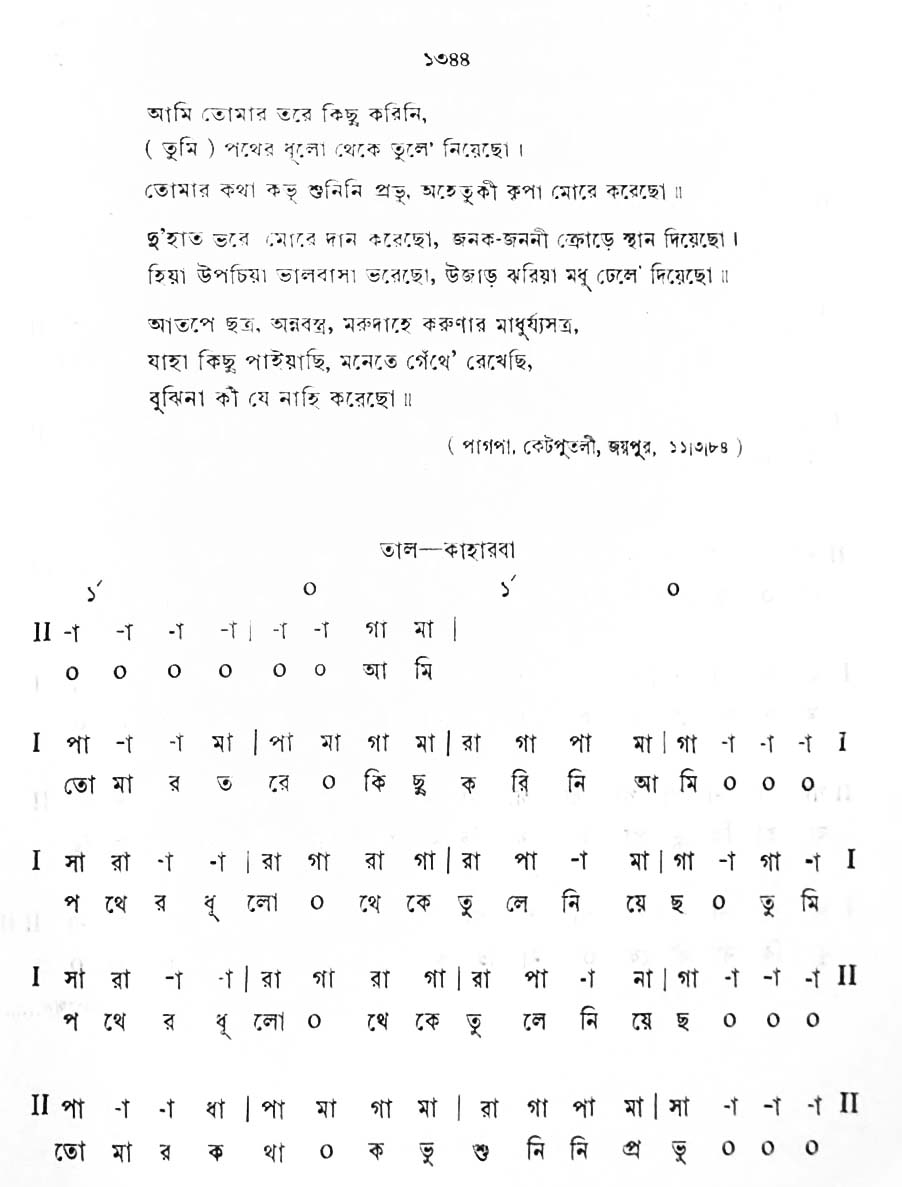 ১৩৪৪
আমি তোমার তরে কিছু করিনি,
( তুমি ) পথের ধূলো থেকে তুলে' নিয়েছো ।
তোমার কথা কভু শুনিনি প্রভু, অহেতুকী কৃপা মোরে করেছো ॥
দু'হাত ভরে মোরে দান করেছো, জনক-জননী ক্রোড়ে স্থান দিয়েছো ।
হিয়া উপচিয়া ভালবাসা ভরেছো, উজাড় ঝরিয়া মধু ঢেলে' দিয়েছো ॥
আতপে ছত্র, অন্নবস্ত্র, মরুদাহে করুণার মাধুর্য্যসত্র,
যাহা কিছু পাইয়াছি, মনেতে গেঁথে' রেখেছি,
বুঝিনা কী যে নাহি করেছো ॥
( পাগপা, কেটপুতলী, জয়পুর, ১১।৩।৮৪ )
তাল—কাহারবা
১´ ০ ১´ ০
II -া -া -া -া | -া -া গা মা |
০ ০ ০ ০ ০ ০ আ মি
I পা -া -া মা | পা মা গা মা | রা গা পা মা | গা -া -া -া I
তো মা র ত রে ০ কি ছু ক রি নি আ মি ০ ০ ০
I সা রা -া -া | রা গা রা গা | রা পা -া মা | গা -া গা -া I
প থে র ধূ লো ০ থে কে তু লে নি য়ে ছ ০ তু মি
I সা রা -া -া | রা গা রা গা | রা পা -া না | গা -া -া -া II
প থে র ধূ লো ০ থে কে তু লে নি য়ে ছ ০ ০ ০
II পা -া -া ধা | পা মা গা মা | রা গা পা মা | সা -া -া -া II
তো মা র ক থা ০ ক ভু শু নি নি প্র ভু ০ ০ ০